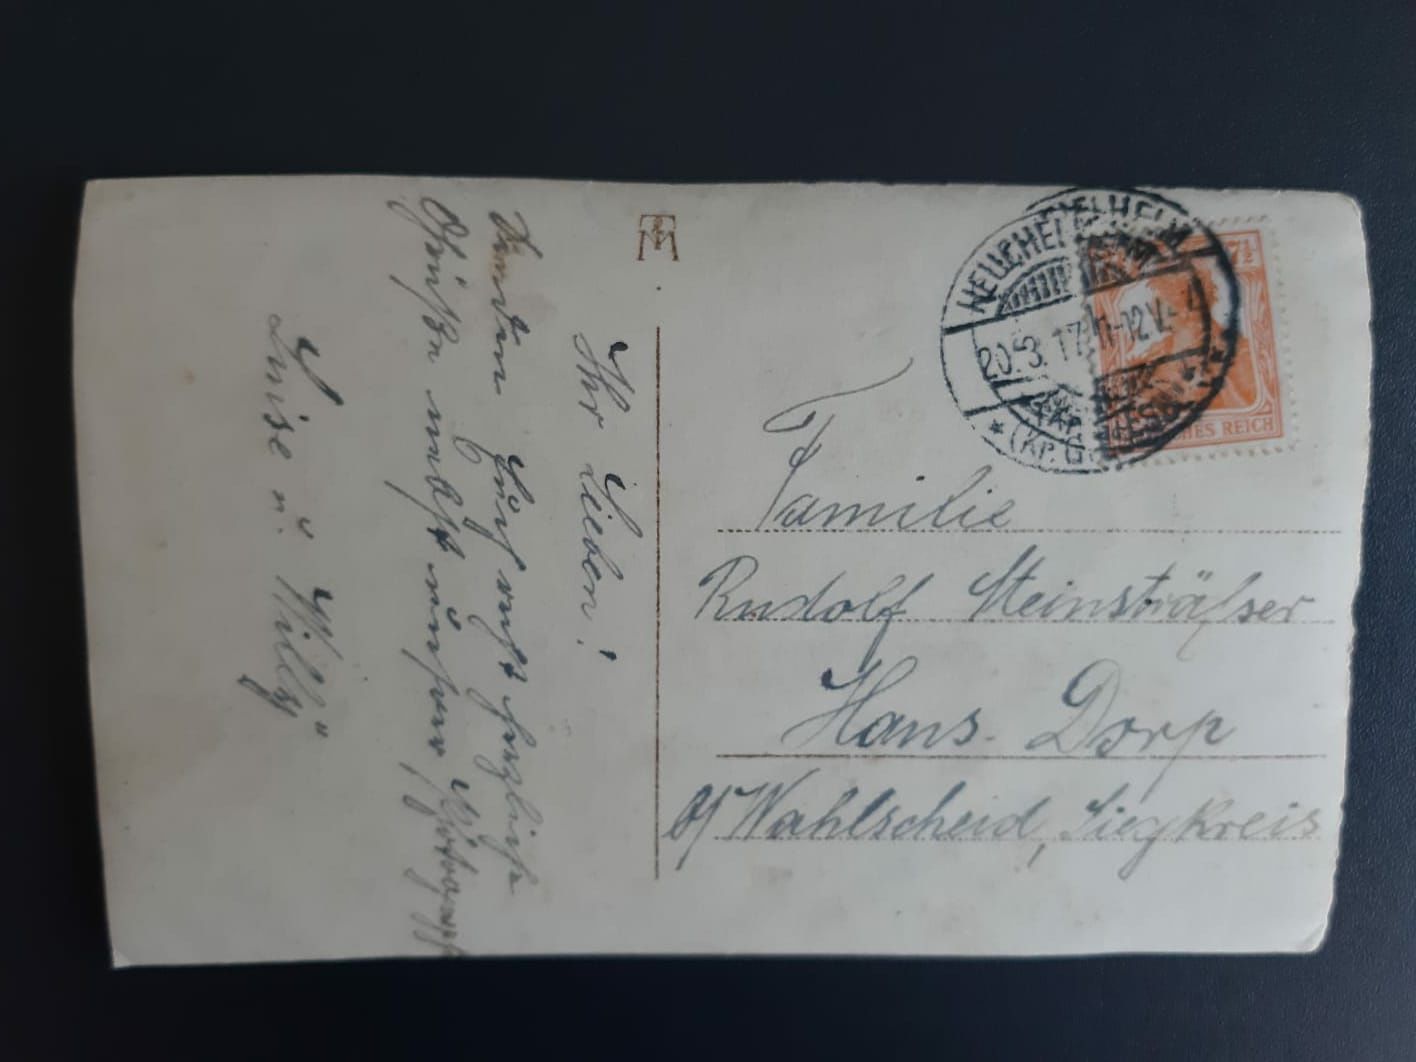 Ihr Lieben!
Senden Euch recht herzliche
Grüße nebst unserer
Luise u. Willy
NEUCHELHEIM
20.3.17. 11-12V.
7½
REICH
Familie
Rudolf Steinsträßer
Hans. Dorp
b/ Wahlscheid, Siegkreis